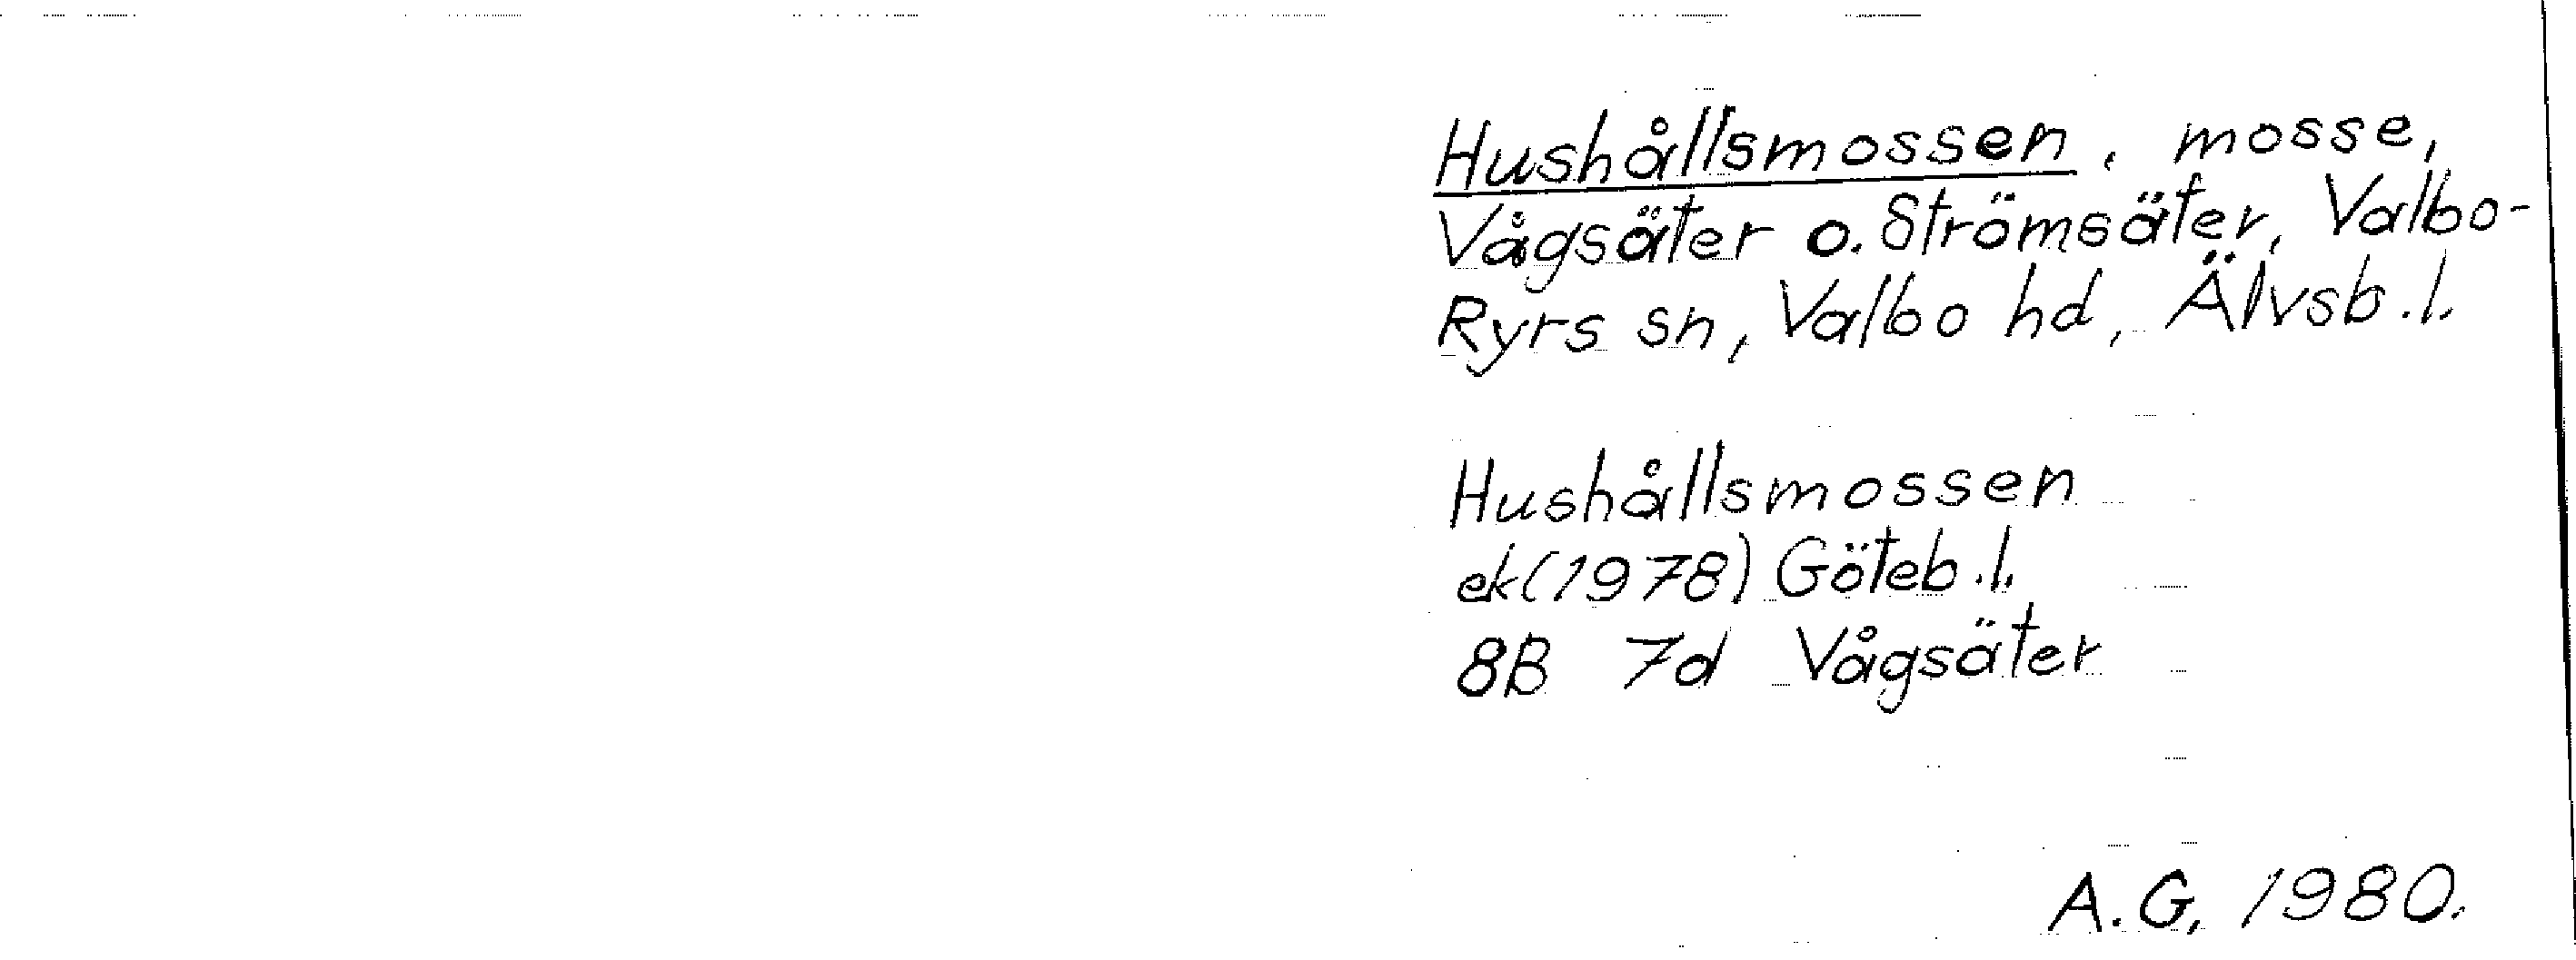 Hushållsmossen, mosse,
Vågsäter o. Strömsäter, Valbo-
Ryrs sn, Valbo hd, Älvsb.l.
Hushållsmossen
ek(1978) Göteb.l.
8B 7d Vågsäter
A.G. 1980.